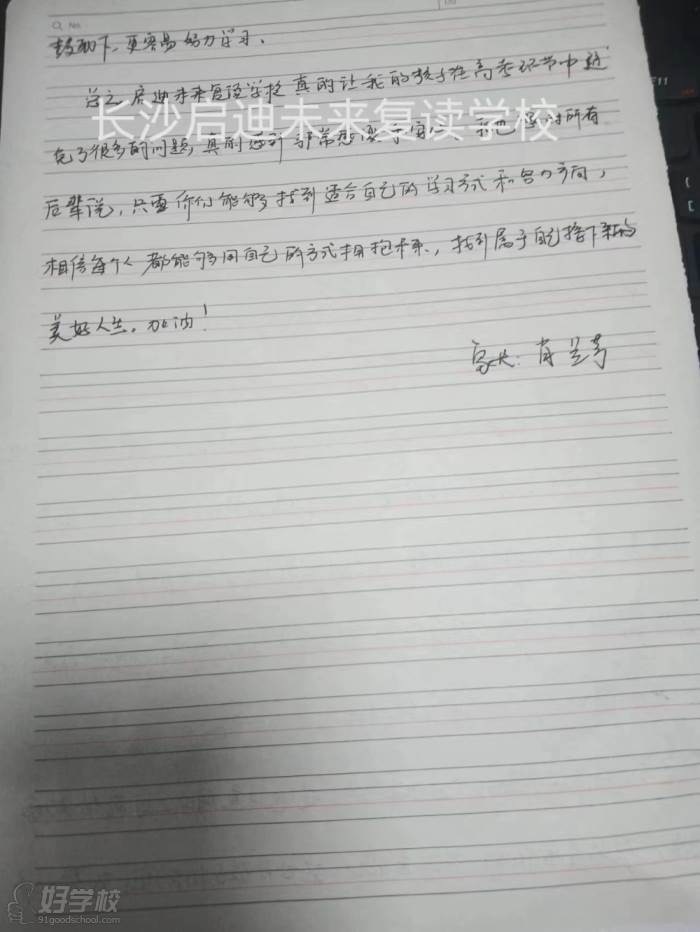 No.
鼓励下，更容易努力学习。
总之，启迪未来复读学校真的让我的孩子在高考环节中
长沙启迪未来复读学校
克了很多的问题，真的感到非常想 所有
后辈说，只要你们能够找到适合自己的学习方式和努力方向，
相信每个人都能够用自己的方式拥抱未来，找到属于自己接下来的
美好人生，加油！
家长：肖
好学校
91goodschool.com